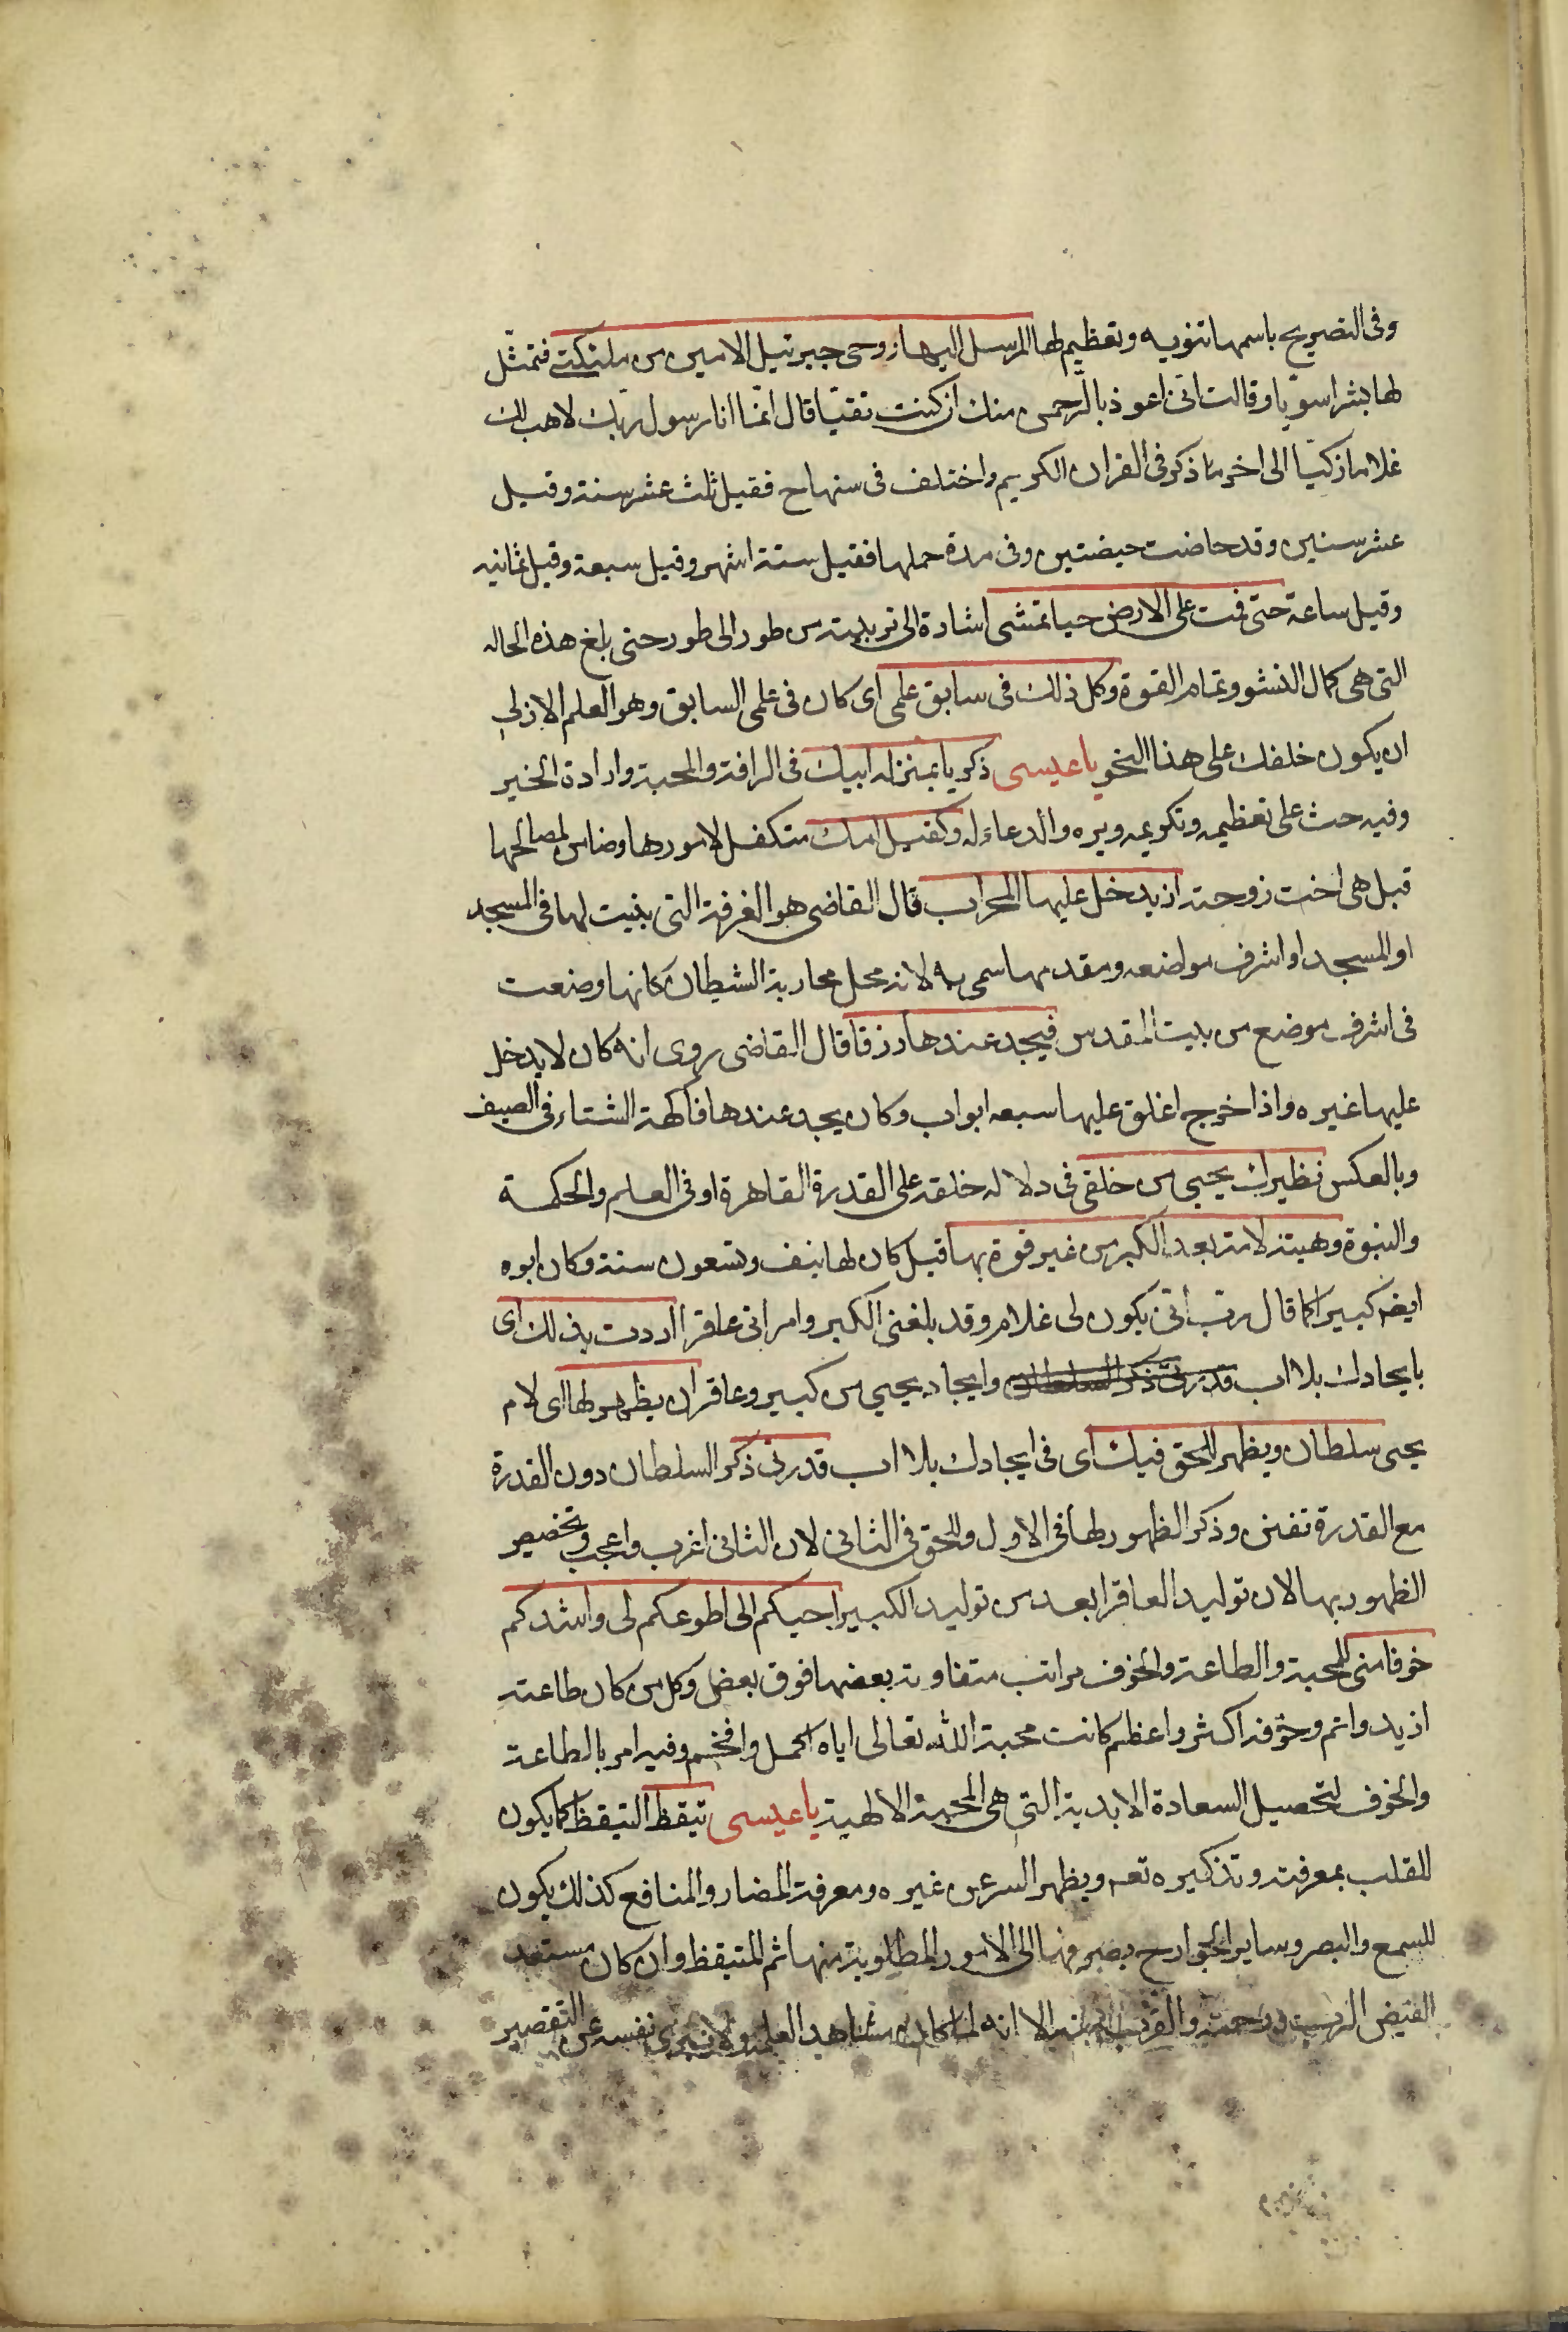 وفى التصريح باسمها تنويه وتعظيم لها المرسل اليها روحى جبرئيل الامين من ملئكتى فتمثل
لها بشرا سويا وقالت انى اعوذ بالرحمن منك ان كنت تقيا قال انما انا رسول ربك لاهب لك
غلاما زكيا الى اخر ما ذكر فى القران الكريم واختلف فى سنها ح فقيل ثلث عشر سنة وقيل
عشر سنين وقد حاضت حيضتين وفى مدة حملها فقيل ستة اشهر وقيل سبعة وقيل ثمانيه
وقيل ساعة حتى قمت على الارض حيا تمشى اشارة الى تربيته من طور الى طور حتى بلغ هذه الحاله
التى هى كمال النشو وتمام القوة وكل ذلك فى سابق علمى اى كان فى علمى السابق وهو العلم الازلى
ان يكون خلقك على هذا النحو يا عيسى زكريا بمنزله ابيك فى الرافة والمحبة وارادة الخير
وفيه حث على تعظيمه وتكريمه وبره والدعاء له وكفيل امك متكفل لامورها وضامن لمصالحها
قيل هى اخت زوجته اذ يدخل عليها المحراب قال القاضى هو الغرفة التى بنيت لها فى المسجد
او المسجد او اشرف مواضعه ومقدمها سمى به لانه محل محاربة الشيطان كانها وضعت
فى اشرف موضع من بيت المقدس فيجد عندها رزقا قال القاضى روى انه كان لا يدخل
عليها غيره واذا خرج اغلق عليها سبعه ابواب وكان يجد عندها فاكهة الشتاء فى الصيف
وبالعكس نظيرك يحيى من خلقى فى دلاله خلقه على القدرة القاهرة او فى العلم والحكمة
والنبوة وهبته لامه بعد الكبر من غير قوة بها قيل كان لها نيف وتسعون سنة وكان ابوه
ايضه كبيرا كما قال رب انى يكون لى غلام وقد بلغنى الكبر وامراتى عاقرا اردت بذلك اى
بايجادك بلا اب وايجاد يحيى من كبير وعاقر ان يظهر لها اى لام
يحيى سلطان ويظهر للحق فيك اى فى ايجادك بلا اب قدرتى ذكر السلطان دون القدرة
مع القدرة تفنن وذكر الظهور لها فى الاول وللحق فى الثانى لان الثانى اغرب واعجب وتخصيص
الظهور بها لان توليد العاقر ابعد من توليد الكبير احبكم الى اطوعكم لى واشدكم
خوفا منى للمحبة والطاعة والخوف مراتب متفاوته بعضها فوق بعض وكل من كان طاعته
ازيد واتم وخوفه اكثر واعظم كانت محبة الله تعالى اياه اكمل وافخم وفيه امر بالطاعة
والخوف لتحصيل السعادة الابدية التى هى المحبة الالهية يا عيسى تيقظ التيقظ كما يكون
للقلب بمعرفته وتذكيره تعه ويظهر السر عن غيره ومعرفة المضار والمنافع كذلك يكون
للسمع والبصر وساير الجوارح بصرفها الى الامور المطلوبة منها ثم المتيقظ وان كان مستعد
لفيض الرب ورحمته والقرب منه الا انه لما كان يشاهد العلم ولا يبرى نفسه عن التقصير